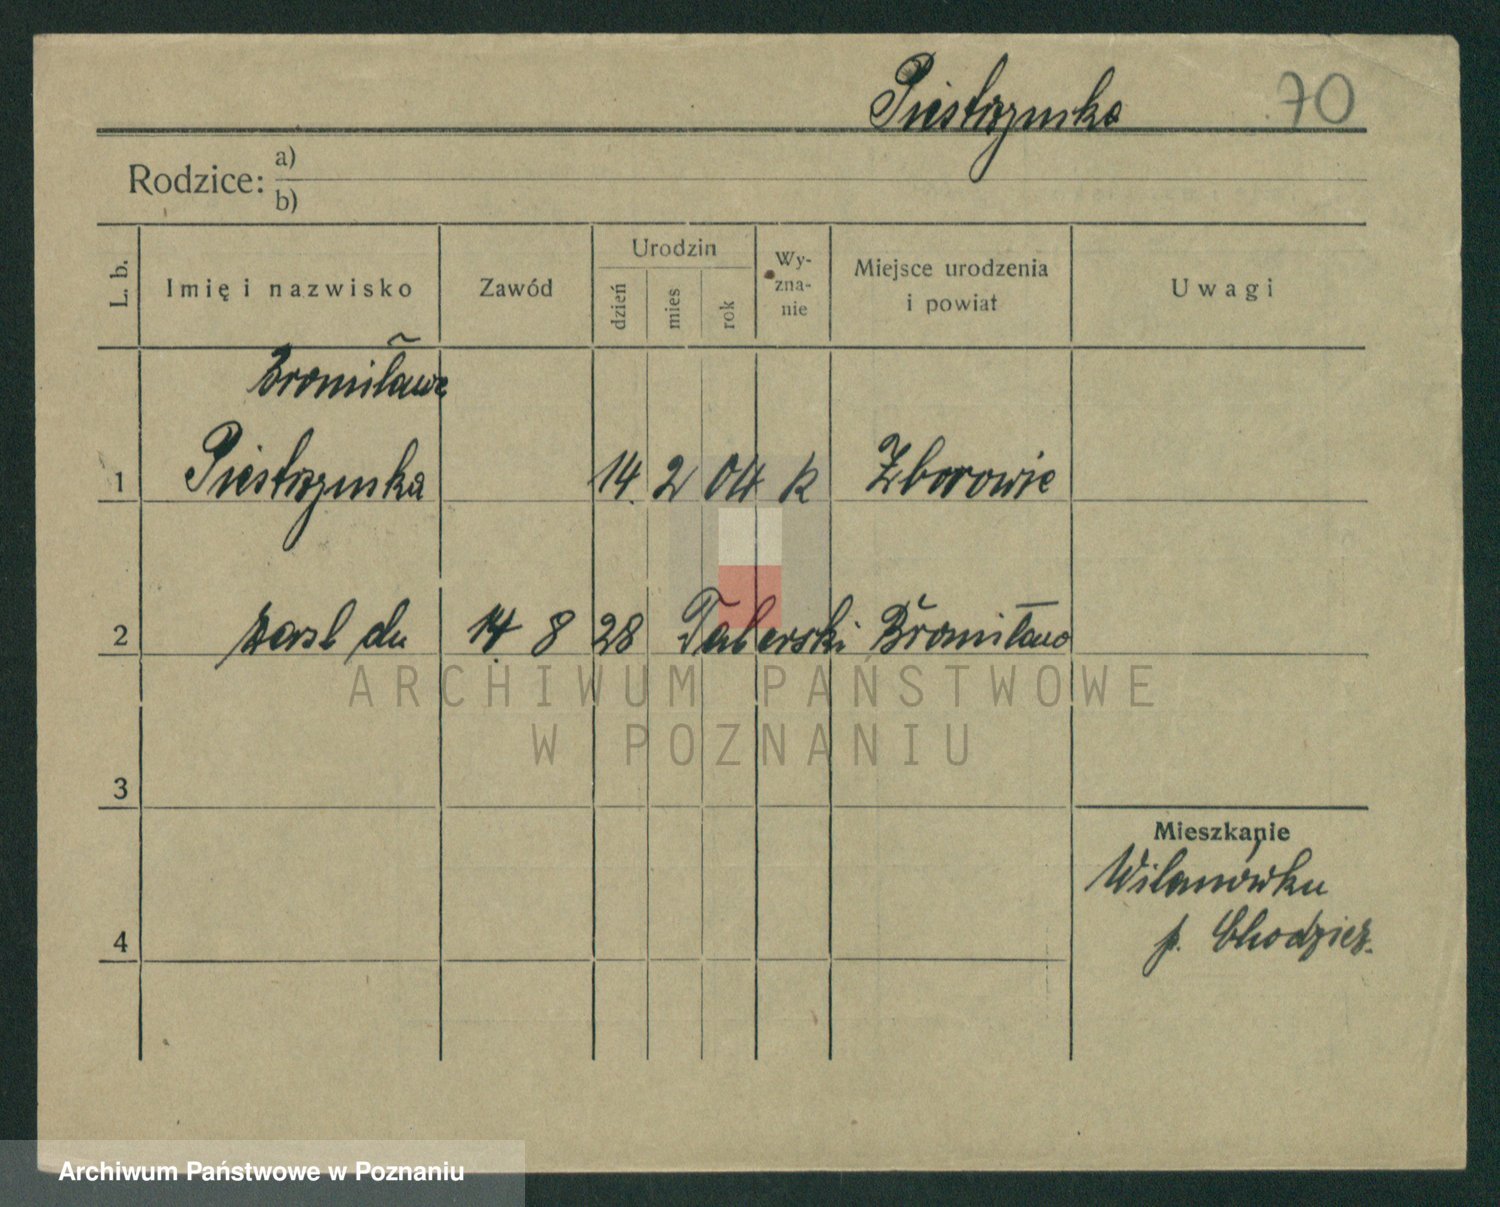 Piestrzynka 70
Rodzice: a)
b)
L. b. Imię i nazwisko Zawód Urodzin dzień mies rok Wy-zna-nie Miejsce urodzenia i powiat Uwagi
Bronisława
1 Piestrzynska 14 2 04 k Zborowie
2 zasl du 14 8 28 Taberski Bronisław
ARCHIWUM PAŃSTWOWE
W POZNANIU
3
Mieszkanie
Wilanówku
4 p. Chodzież.
Archiwum Państwowe w Poznaniu